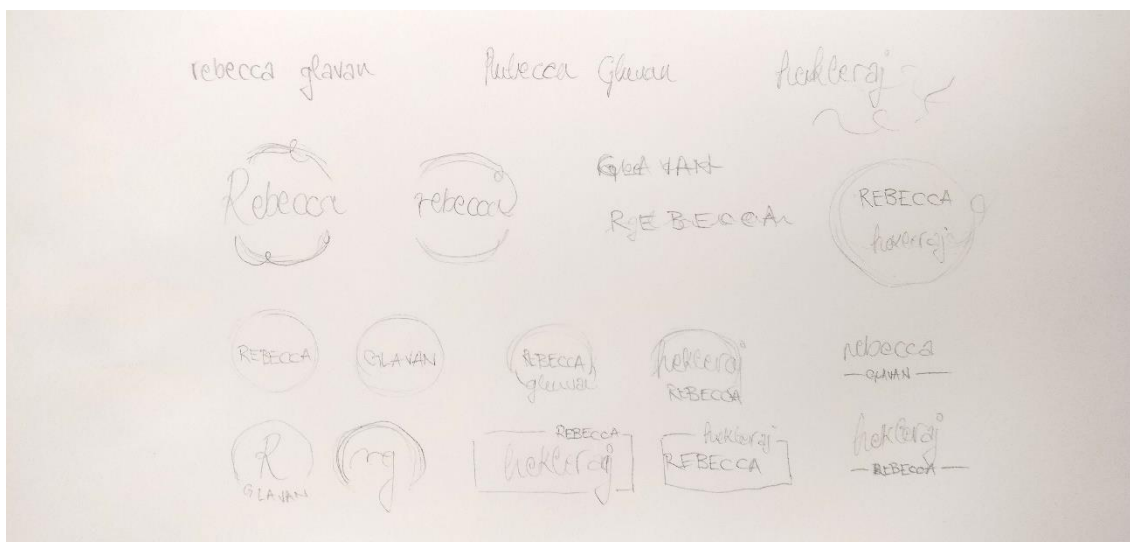 rebecca glavan
Rebecca Glavan
hekleraj
Rebecca
rebecca
GLAVAN
REBECCA
REBECCA
hekleraj
REBECCA
GLAVAN
REBECCA
glavan
hekleraj
REBECCA
rebecca
GLAVAN
R
GLAVAN
rg
REBECCA
hekleraj
hekleraj
REBECCA
hekleraj
REBECCA